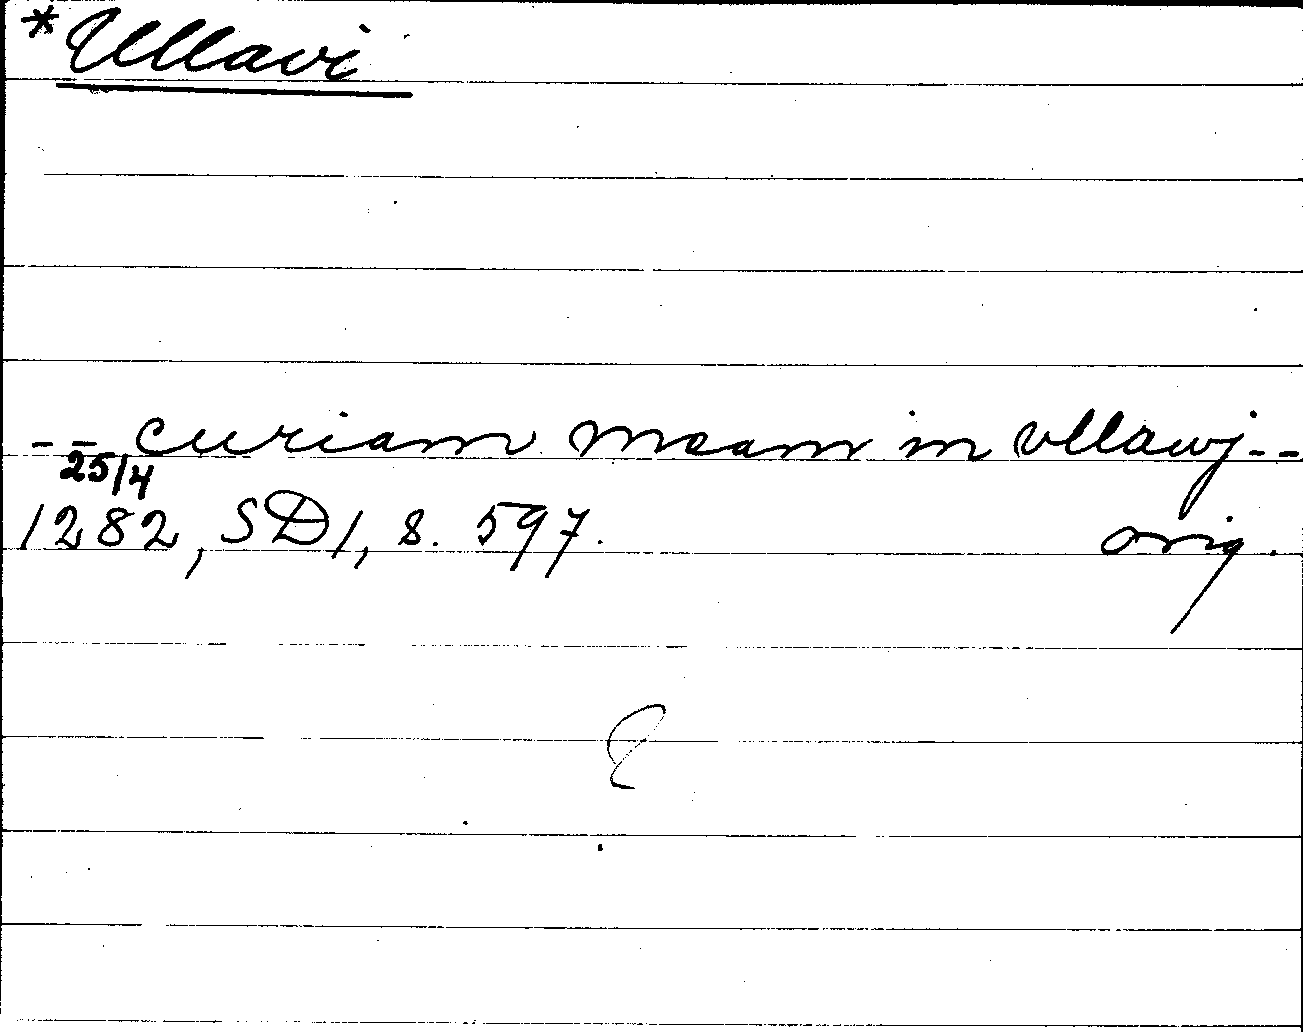 *Ullavi
-- curiam meam in vllawj--
25/4
1282, SD 1, s. 597. orig.